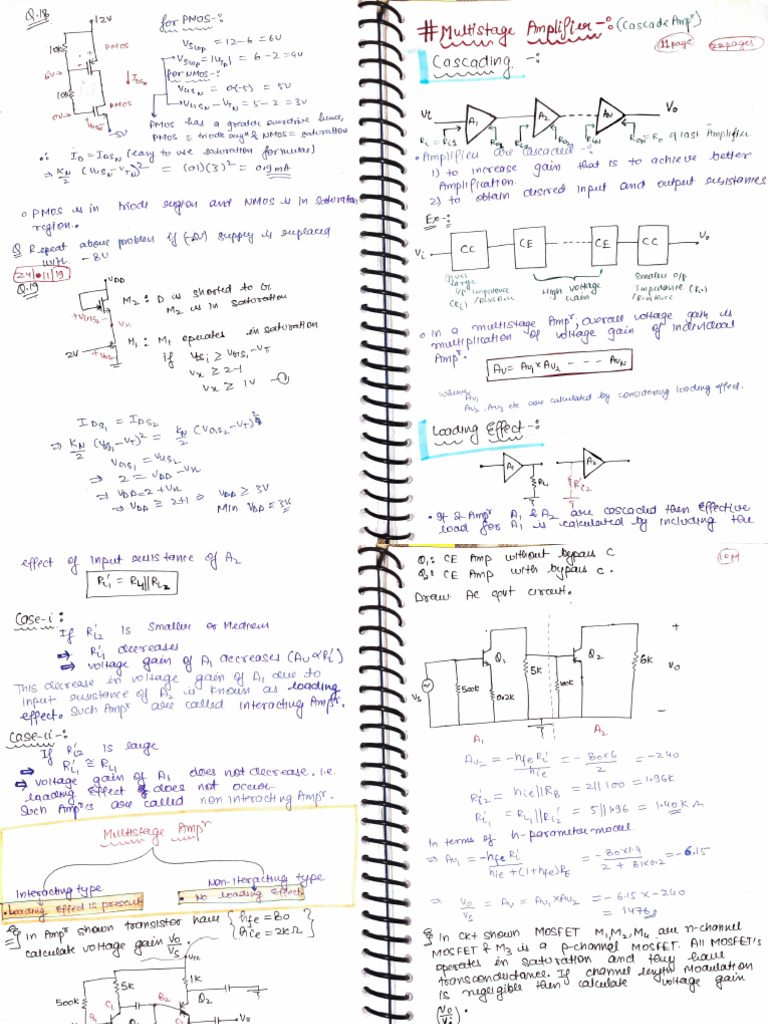 Q.18
12V
for PMOS-:
10k
PMOS
VSGp = 12-6 = 6V
VSGp - |VTp| = 6-2 = 4V
6V
IDSN
for NMOS-:
10k
VGSN = 0-(-5) = 5V
VGSN - VTN = 5-2 = 3V
0V
PMOS
-5V
PMOS has a greater overdrive hence,
PMOS = triode regn & NMOS = saturation
∴ ID = IDSN (easy to use saturation formulas)
⇒ KN/2 (VGSN - VTN)² = (0.1)(3)² = 0.9mA
o PMOS is in triode region and NMOS is in saturation
region.
Q Repeat above problem if (-5V) supply is replaced
with -8V
24/01/19
Q.19
VDD
M2: D is shorted to G.
M2 is in saturation
+VGS2-
Vx
M1: M1 operates in saturation
2V
if VDS1 ≥ VGS1 - VT
Vx ≥ 2-1
Vx ≥ 1V
IDS1 = IDS2
⇒ KN/2 (VGS1-VT)² = KN/2 (VGS2-VT)²
VGS1 = VGS2
⇒ 2 = VDD - Vx
⇒ VDD = 2+Vx
⇒ VDD ≥ 2+1 ⇒ VDD ≥ 3V
Min VDD = 3V
# Multistage Amplifier-: (Cascade Ampr)
11 page
22 pages
Cascading -:
Vi
A1
A2
AN
Vo
Ri = Ri1
Ro1
Ri2
Ro2
RiN
RoN = Ro of last Amplifier
• Amplifier are cascaded-:
1) to increase gain that is to achieve better
Amplification.
2) to obtain desired input and output resistances
Ex-:
Vi
CC
CE
CE
CC
Vo
Gives
large
i/p impedance
(Ri)/Resistance
High voltage
Gain
Smaller o/p
impedance (Ro)
/Resistance
o In a multistage Ampr, overall voltage gain is
multiplication of voltage gain of individual
Ampr.
AV = AV1 × AV2 - - - - AVN
where,
AV1
AV2, AV3 etc are calculated by considering loading effect.
Loading Effect-:
A1
RL1
A2
Ri2
• If 2 Ampr A1 & A2 are cascaded then effective
load for A1 is calculated by including the
effect of input resistance of A2
RL1' = RL1||Ri2
Case-i:
If Ri2' is smaller or Medium
⇒ RL1' decreases
⇒ voltage gain of A1 decreases (AV∝RL')
This decrease in voltage gain of A1 due to
input resistance of A2 is known as loading
effect. Such Ampr are called interacting Ampr.
Case-ii-:
If Ri2' is large
⇒ RL1' ≅ RL1
⇒ voltage gain of A1 does not decrease. i.e.
loading effect does not occur.
Such Ampr's are called non interacting Ampr.
Multistage Ampr
Interacting type
• Loading Effect is present
Non-Iteracting type
• No loading Effect
Q In Ampr shown transistor have {hfe = 80
calculate voltage gain Vo/Vs {hie = 2kΩ}
Vcc
500k
5K
1K
C1
B2
Q2
B1
C2
Vo
Q1: CE Amp without bypass C
Q2: CE Amp with bypass C.
Draw AC eqvt circuit.
Vs
500k
Q1
0.2K
5K
100k
Q2
6K
+
Vo
-
A1
A2
AV2 = -hfe RL'/hie = -80×6/2 = -240
Ri2' = hie||RB = 2||100 = 1.96K
RL1' = RL1||Ri2' = 5||1.96 = 1.40KΩ
In terms of h-parameter model.
⇒ AV1 = -hfe RL'/hie+(1+hfe)RE = -80×1.4/2+81×0.2 = -6.15
⇒ Vo/Vs = AV = AV1×AV2 = -6.15 × -240
= 1476
Q In ckt shown MOSFET M1,M2,M4 are n-channel
MOSFET & M3 is a p-channel MOSFET. All MOSFET's
operates in saturation and they have
transconductance. If channel length Modulation
is negligible then calculate voltage gain
(Vo/Vi).